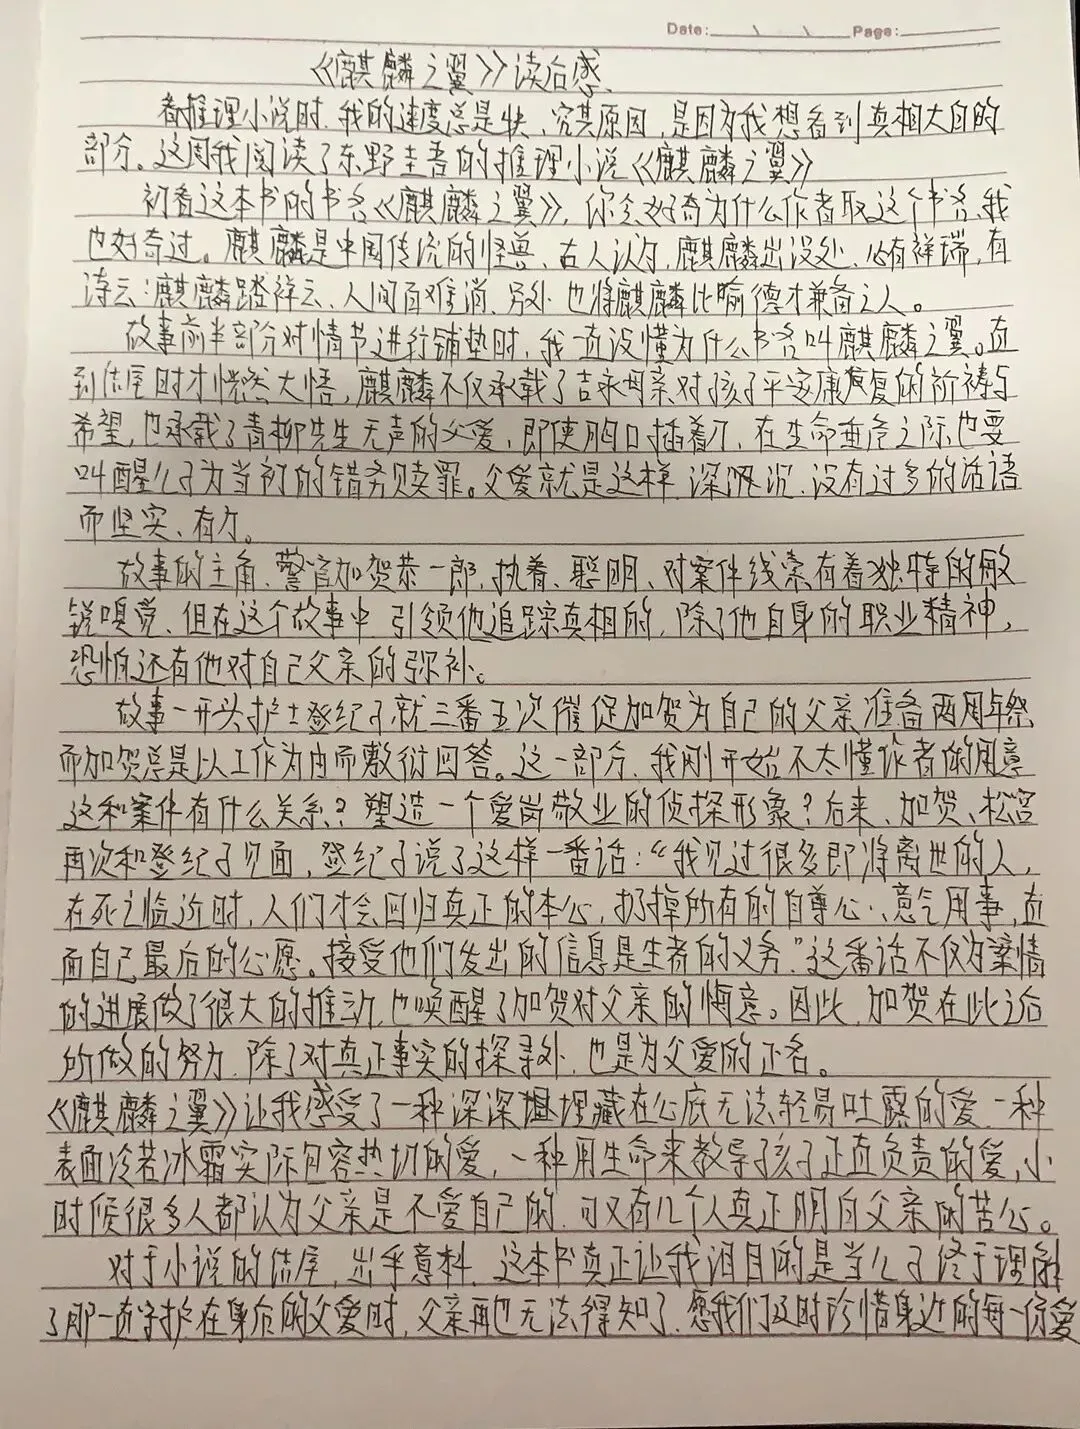 Date: \ \ Page:
《麒麟之翼》读后感、
看推理小说时、我的速度总是快、究其原因、是因为我想看到真相大白的
部分。这周我阅读了东野圭吾的推理小说《麒麟之翼》
初看这本书的书名《麒麟之翼》，你会好奇为什么作者取这个书名、我
也好奇过。麒麟是中国传说的怪兽、古人认为，麒麟出没处、必有祥瑞，有
诗云：麒麟踏祥云、人间百难消、另外、也将麒麟比喻德才兼备之人。
故事前半部分对情节进行铺垫时，我一直没懂为什么书名叫麒麟之翼。直
到结尾时才恍然大悟，麒麟不仅承载了吉永母亲对孩子平安康复的祈祷与
希望，也承载了青柳先生无声的父爱、即使胸口插着刀、在生命垂危之际、也要
叫醒儿子为当初的错务赎罪。父爱就是这样、深沉、没有过多的话语
而坚实、有力。
故事的主角、警官加贺恭一郎、执着、聪明、对案件线索有着独特的敏
锐嗅觉、但在这个故事中 引领他追踪真相的，除了他自身的职业精神，
恐怕还有他对自己父亲的弥补。
故事一开头护士登纪子就三番五次催促加贺为自己的父亲准备两周年祭
而加贺总是以工作为由而敷衍回答。这一部分、我刚开始不太懂作者的用意
这和案件有什么关系？塑造一个爱岗敬业的侦探形象？后来、加贺、松宫
再次和登纪子见面，登纪子说了这样一番话：“我见过很多即将离世的人，
在死之临近时，人们才会回归真正的本心，扔掉所有的自尊心、意气用事，直
面自己最后的心愿。接受他们发出的信息是生者的义务”这番话不仅为案情
的进展做了很大的推动，也唤醒了加贺对父亲的悔意。因此、加贺在此之后
所做的努力、除了对真正事实的探寻外、也是为父爱的正名。
《麒麟之翼》让我感受了一种深深埋藏在心底无法轻易吐露的爱、一种
表面冷若冰霜实际包容热切的爱，一种用生命来教导孩子正直负责的爱，小
时候很多人都认为父亲是不爱自己的、可又有几个人真正明白父亲的苦心。
对于小说的结尾，出乎意料、这本书真正让我泪目的是当儿子终于理解
了那一直守护在身后的父爱时，父亲再也无法得知了、愿我们及时珍惜身边的每一份爱